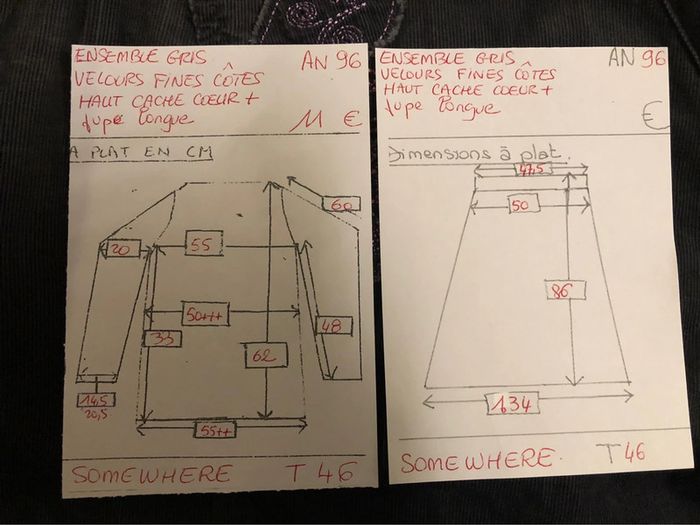 ENSEMBLE GRIS AN 96
VELOURS FINES CÔTES
HAUT CACHE COEUR +
Jupe longue 11 €
A PLAT EN CM
60
20
55
50+++
33
48
62
14,5
20,5
55++
SOMEWHERE T 46
ENSEMBLE GRIS AN 96
VELOURS FINES CÔTES
HAUT CACHE COEUR +
Jupe longue €
Dimensions à plat.
47,5
50
86
1,34
SOMEWHERE. T 46